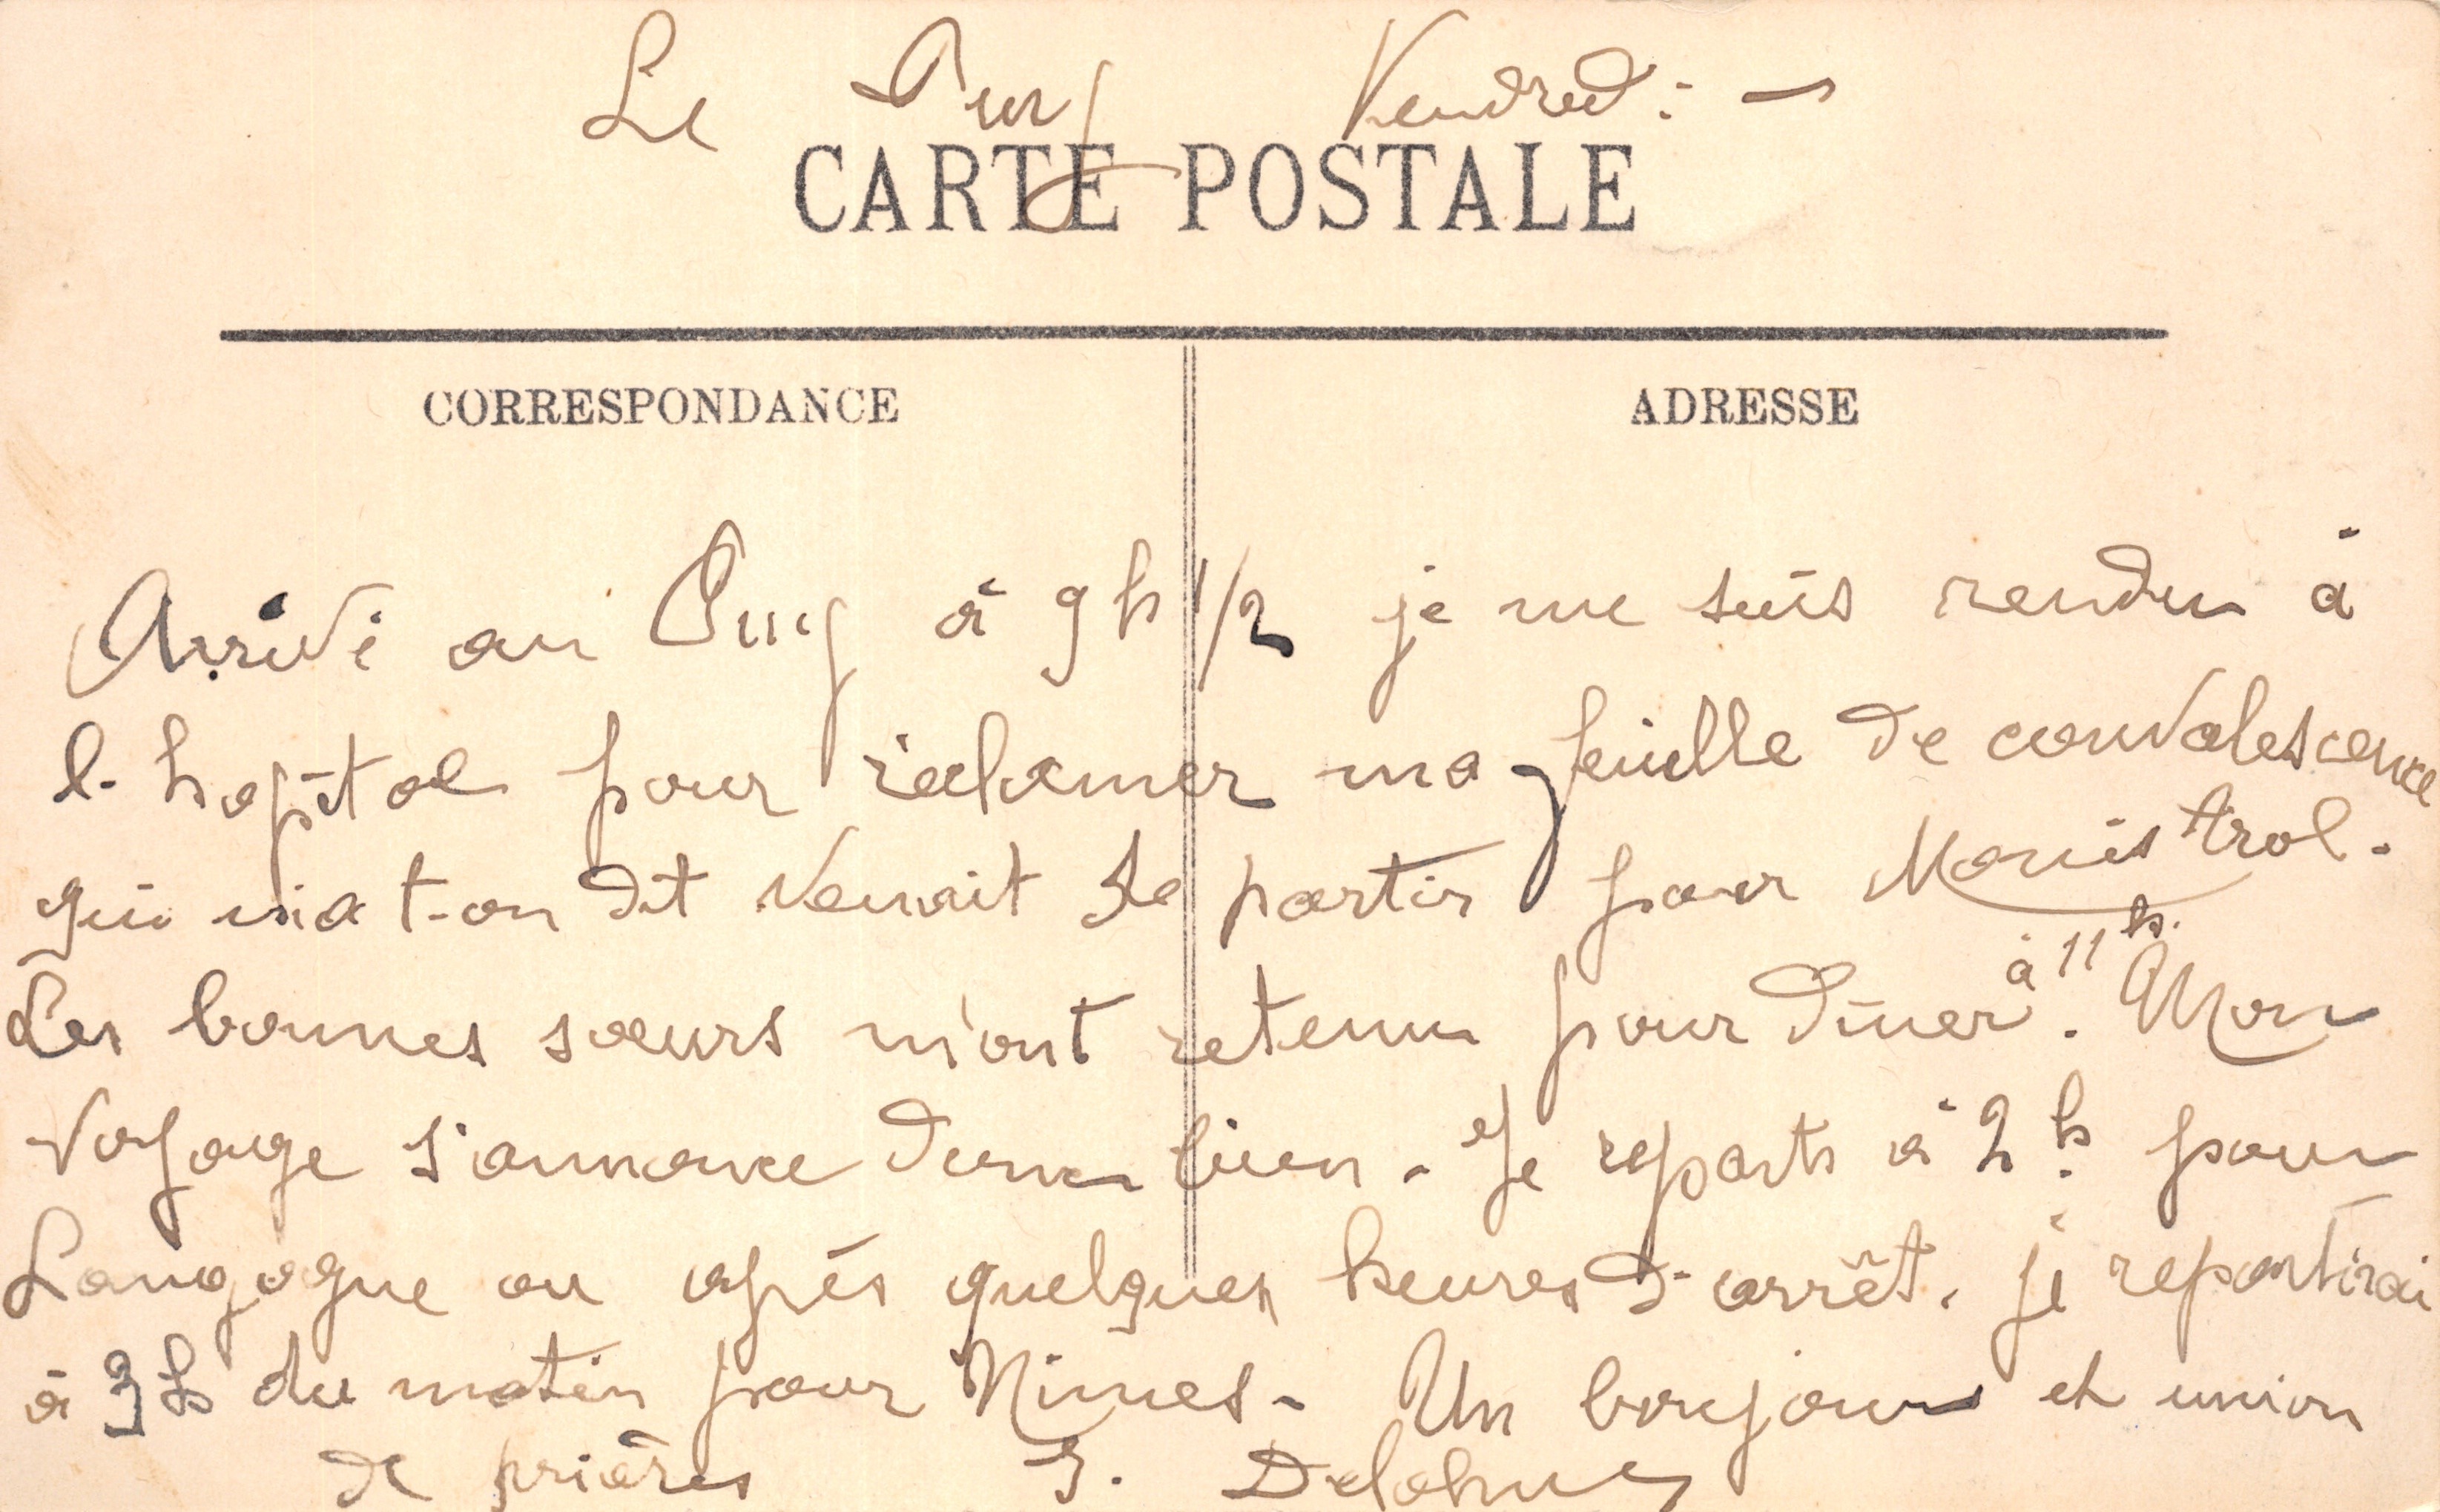 Le Puy Vendredi -
CARTE POSTALE
CORRESPONDANCE
ADRESSE
Arrivé au Puy à 9 h 1/2 je me suis rendu à
l'hopital pour réclamer ma feuille de convalescence
qui m'a t-on dit venait de partir pour Monistrol.
Les bonnes sœurs m'ont retenu pour dîner à 11 h. Mon
voyage s'annonce donc bien. Je reparts à 2 h. pour
Langogne ou après quelques heures d'arrêt. je repartirai
à 3 h du matin pour Nimes. Un bonjour et union
de prières J.